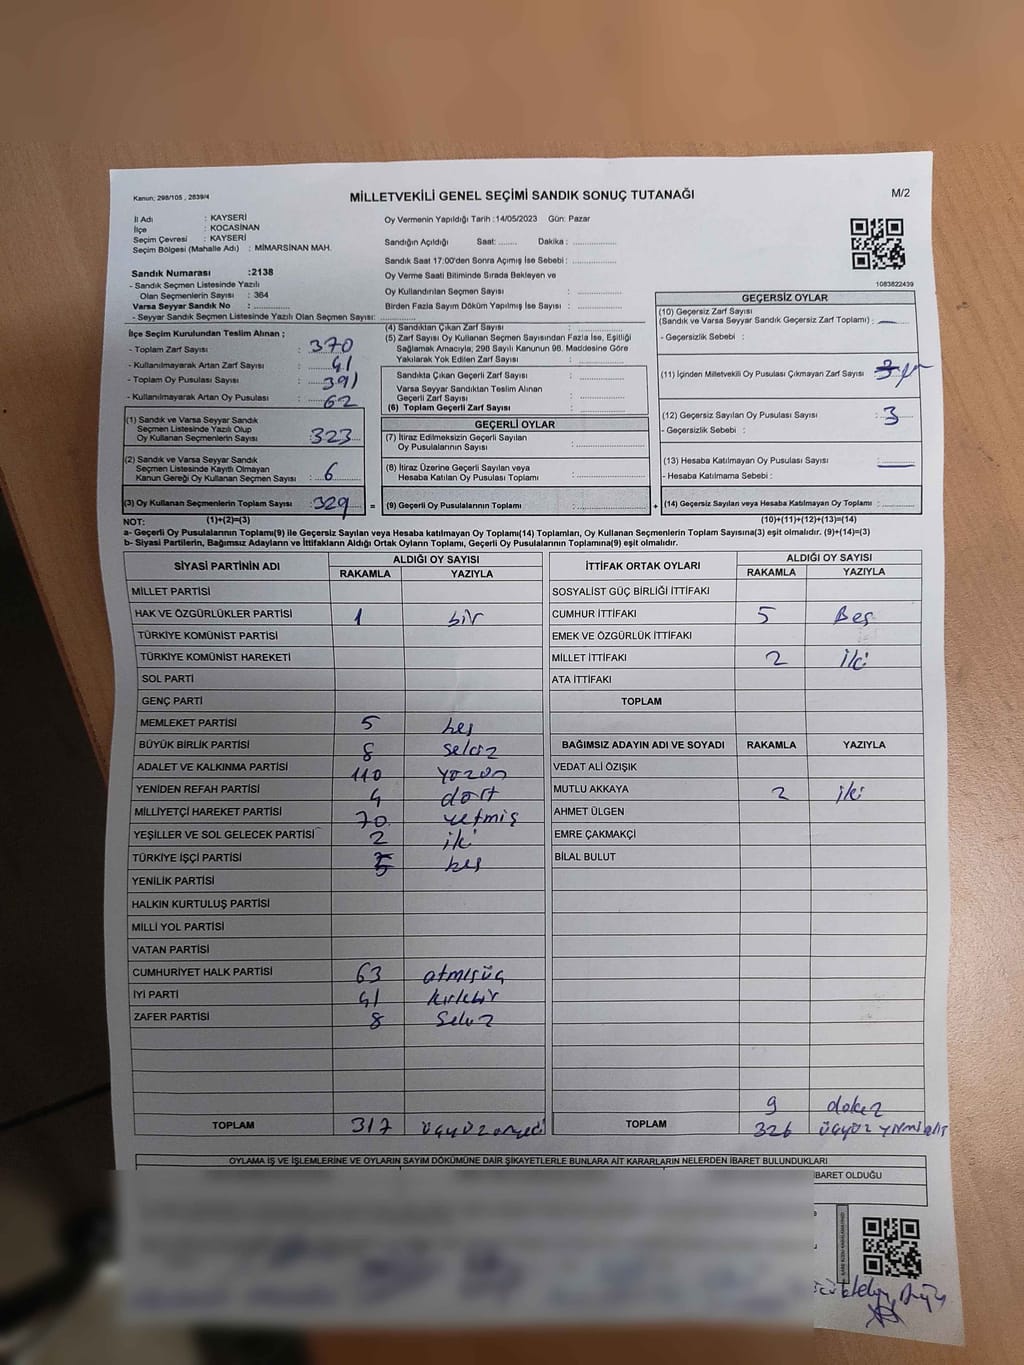 Kanun; 298/105 , 2839/4
MİLLETVEKİLİ GENEL SEÇİMİ SANDIK SONUÇ TUTANAĞI
M/2
İl Adı : KAYSERİ
İlçe : KOCASİNAN
Seçim Çevresi : KAYSERİ
Seçim Bölgesi (Mahalle Adı) : MİMARSİNAN MAH.
Oy Vermenin Yapıldığı Tarih :14/05/2023 Gün: Pazar
Sandığın Açıldığı Saat: ........ Dakika : ....................
Sandık Saat 17:00'den Sonra Açımış İse Sebebi : ....................
Oy Verme Saati Bitiminde Sırada Bekleyen ve
Oy Kullandırılan Seçmen Sayısı : ....................
Birden Fazla Sayım Döküm Yapılmış İse Sayısı : ....................
1083822439
Sandık Numarası :2138
- Sandık Seçmen Listesinde Yazılı
Olan Seçmenlerin Sayısı : 364
Varsa Seyyar Sandık No : ..............
- Seyyar Sandık Seçmen Listesinde Yazılı Olan Seçmen Sayısı: ..............
İlçe Seçim Kurulundan Teslim Alınan ;
- Toplam Zarf Sayısı : 370
- Kullanılmayarak Artan Zarf Sayısı : 41
- Toplam Oy Pusulası Sayısı : 391
- Kullanılmayarak Artan Oy Pusulası : 62
(1) Sandık ve Varsa Seyyar Sandık
Seçmen Listesinde Yazılı Olup
Oy Kullanan Seçmenlerin Sayısı : 323
(2) Sandık ve Varsa Seyyar Sandık
Seçmen Listesinde Kayıtlı Olmayan
Kanun Gereği Oy Kullanan Seçmen Sayısı : 6
(3) Oy Kullanan Seçmenlerin Toplam Sayısı : 329 =
(4) Sandıktan Çıkan Zarf Sayısı : ..............
(5) Zarf Sayısı Oy Kullanan Seçmen Sayısından Fazla İse, Eşitliği
Sağlamak Amacıyla; 298 Sayılı Kanunun 98. Maddesine Göre
Yakılarak Yok Edilen Zarf Sayısı : ..............
Sandıkta Çıkan Geçerli Zarf Sayısı : ..............
Varsa Seyyar Sandıktan Teslim Alınan
Geçerli Zarf Sayısı : ..............
(6) Toplam Geçerli Zarf Sayısı : ..............
GEÇERLİ OYLAR
(7) İtiraz Edilmeksizin Geçerli Sayılan
Oy Pusulalarının Sayısı : ..............
(8) İtiraz Üzerine Geçerli Sayılan veya
Hesaba Katılan Oy Pusulası Toplamı : ..............
(9) Geçerli Oy Pusulalarının Toplamı : .............. +
GEÇERSİZ OYLAR
(10) Geçersiz Zarf Sayısı
(Sandık ve Varsa Seyyar Sandık Geçersiz Zarf Toplamı) : —
- Geçersizlik Sebebi :
(11) İçinden Milletvekili Oy Pusulası Çıkmayan Zarf Sayısı : 3
(12) Geçersiz Sayılan Oy Pusulası Sayısı : 3
- Geçersizlik Sebebi :
(13) Hesaba Katılmayan Oy Pusulası Sayısı : —
- Hesaba Katılmama Sebebi :
(14) Geçersiz Sayılan veya Hesaba Katılmayan Oy Toplamı : ..............
NOT: (1)+(2)=(3)
(10)+(11)+(12)+(13)=(14)
a- Geçerli Oy Pusulalarının Toplamı(9) ile Geçersiz Sayılan veya Hesaba katılmayan Oy Toplamı(14) Toplamları, Oy Kullanan Seçmenlerin Toplam Sayısına(3) eşit olmalıdır. (9)+(14)=(3)
b- Siyasi Partilerin, Bağımsız Adayların ve İttifakların Aldığı Ortak Oyların Toplamı, Geçerli Oy Pusulalarının Toplamına(9) eşit olmalıdır.
SİYASİ PARTİNİN ADI ALDIĞI OY SAYISI
RAKAMLA YAZIYLA
MİLLET PARTİSİ
HAK VE ÖZGÜRLÜKLER PARTİSİ 1 bir
TÜRKİYE KOMÜNİST PARTİSİ
TÜRKİYE KOMÜNİST HAREKETİ
SOL PARTİ
GENÇ PARTİ
MEMLEKET PARTİSİ 5 beş
BÜYÜK BİRLİK PARTİSİ 8 sekiz
ADALET VE KALKINMA PARTİSİ 110 yüzon
YENİDEN REFAH PARTİSİ 4 dört
MİLLİYETÇİ HAREKET PARTİSİ 70 yetmiş
YEŞİLLER VE SOL GELECEK PARTİSİ 2 iki
TÜRKİYE İŞÇİ PARTİSİ 5 beş
YENİLİK PARTİSİ
HALKIN KURTULUŞ PARTİSİ
MİLLİ YOL PARTİSİ
VATAN PARTİSİ
CUMHURİYET HALK PARTİSİ 63 atmışüç
İYİ PARTİ 41 kırkbir
ZAFER PARTİSİ 8 Sekiz
TOPLAM 317 üçyüzonyedi
İTTİFAK ORTAK OYLARI ALDIĞI OY SAYISI
RAKAMLA YAZIYLA
SOSYALİST GÜÇ BİRLİĞİ İTTİFAKI
CUMHUR İTTİFAKI 5 Beş
EMEK VE ÖZGÜRLÜK İTTİFAKI
MİLLET İTTİFAKI 2 İki
ATA İTTİFAKI
TOPLAM
BAĞIMSIZ ADAYIN ADI VE SOYADI RAKAMLA YAZIYLA
VEDAT ALİ ÖZIŞIK
MUTLU AKKAYA 2 iki
AHMET ÜLGEN
EMRE ÇAKMAKÇİ
BİLAL BULUT
9 dokuz
TOPLAM 326 üçyüz yirmialtı
OYLAMA İŞ VE İŞLEMLERİNE VE OYLARIN SAYIM DÖKÜMÜNE DAİR ŞİKAYETLERLE BUNLARA AİT KARARLARIN NELERDEN İBARET BULUNDUKLARI
İBARET OLDUĞU